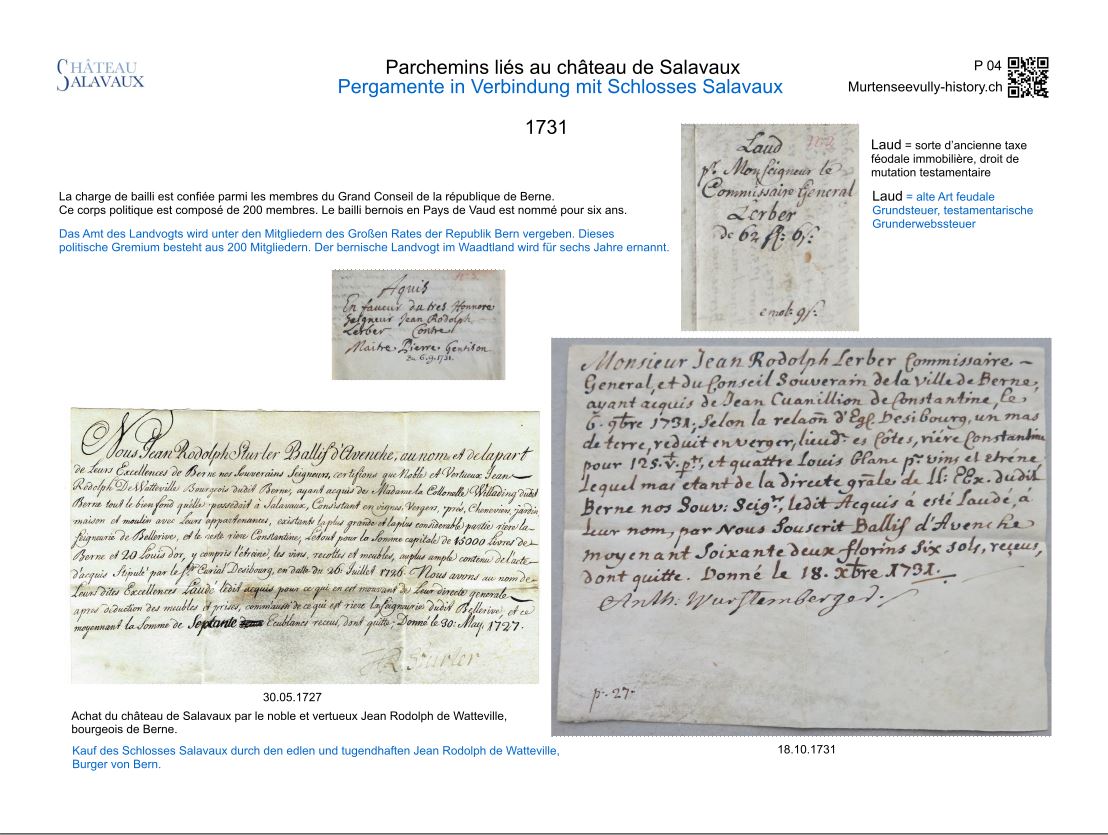 CHÂTEAU
SALAVAUX
Parchemins liés au château de Salavaux
Pergamente in Verbindung mit Schlosses Salavaux
P 04
Murtenseevully-history.ch
1731
La charge de bailli est confiée parmi les membres du Grand Conseil de la république de Berne.
Ce corps politique est composé de 200 membres. Le bailli bernois en Pays de Vaud est nommé pour six ans.
Das Amt des Landvogts wird unter den Mitgliedern des Großen Rates der Republik Bern vergeben. Dieses
politische Gremium besteht aus 200 Mitgliedern. Der bernische Landvogt im Waadtland wird für sechs Jahre ernannt.
Laud
pr. Monseigneur le
Commissaire General
Lerber
de 62 ff: 6s:
emol: 9s:
Laud = sorte d'ancienne taxe
féodale immobilière, droit de
mutation testamentaire
Laud = alte Art feudale
Grundsteuer, testamentarische
Grunderwebssteuer
Aquis
En faveur du tres Honnore
Seigneur Jean Rodolph
Lerber Contre
Maitre Pierre Gentison
Du 6. 9. 1731.
Nous Jean Rodolph Sturler Ballif d'Avenche, au nom et de la part
de Leurs Excellences de Berne nos Souverains Seigneurs, certifions que Noble et Vertueux Jean
Rodolph De Watteville Bourgeois dudit Berne, ayant acquis de Madame la Collonelle Willading dudit
Berne tout le bien fond qu'elle possedoit à Salavaux, Consistant en vignes, Vergers, prés, Chenevieres, jardin
maison et moulin avec Leurs appartenances, existant la plus grande et la plus considerable partie riére la
seigneurie de Bellerive, et le reste riére Constantine, Letout pour la Somme capitale de 15000 Livres de
Berne et 20 Louis d'or, y compris l'étrine, les vins, recoltes et meubles, au plus ample contenu de l'acte
d'acquis Stipulé par le Sr. Curial Desibourg, en datte du 26: Juillet 1726. Nous avons au nom de
Leurs dites Excellences Laudé ledit acquis pour ce qui en est mouvant de Leur directe generale
apres déduction des meubles et prises, comme aussi de ce qui est riére la seigneurie dudit Bellerive, et ce
moyennant la Somme de Septante Ecublancs receus, dont quitte; Donné le 30: May. 1727.
JR Sturler
30.05.1727
Achat du château de Salavaux par le noble et vertueux Jean Rodolph de Watteville,
bourgeois de Berne.
Kauf des Schlosses Salavaux durch den edlen und tugendhaften Jean Rodolph de Watteville,
Burger von Bern.
Monsieur Jean Rodolph Lerber Commissaire
General, et du Conseil Souverain de la Ville de Berne,
ayant acquis de Jean Cuanillion de Constantine, le
6. 9bre 1731, Selon la relaõn d'Eg. Desibourg, un mas
de terre, reduit en verger, lieud: es Côtes, riére Constantine
pour 125. pt, et quattre Louis blanc pr. vins et etréne,
Lequel mas etant de la directe grâle de LL: EEx. dudit
Berne nos Souv: Seigr, ledit Acquis à esté Laudé, à
Leur nom, par Nous Souscrit Ballif d'Avenche
moyenant Soixante deux florins Six Sols, reçeus,
dont quitte. Donné le 18. xbre 1731.
Anth: Wurstemberger:
p. 27.
18.10.1731